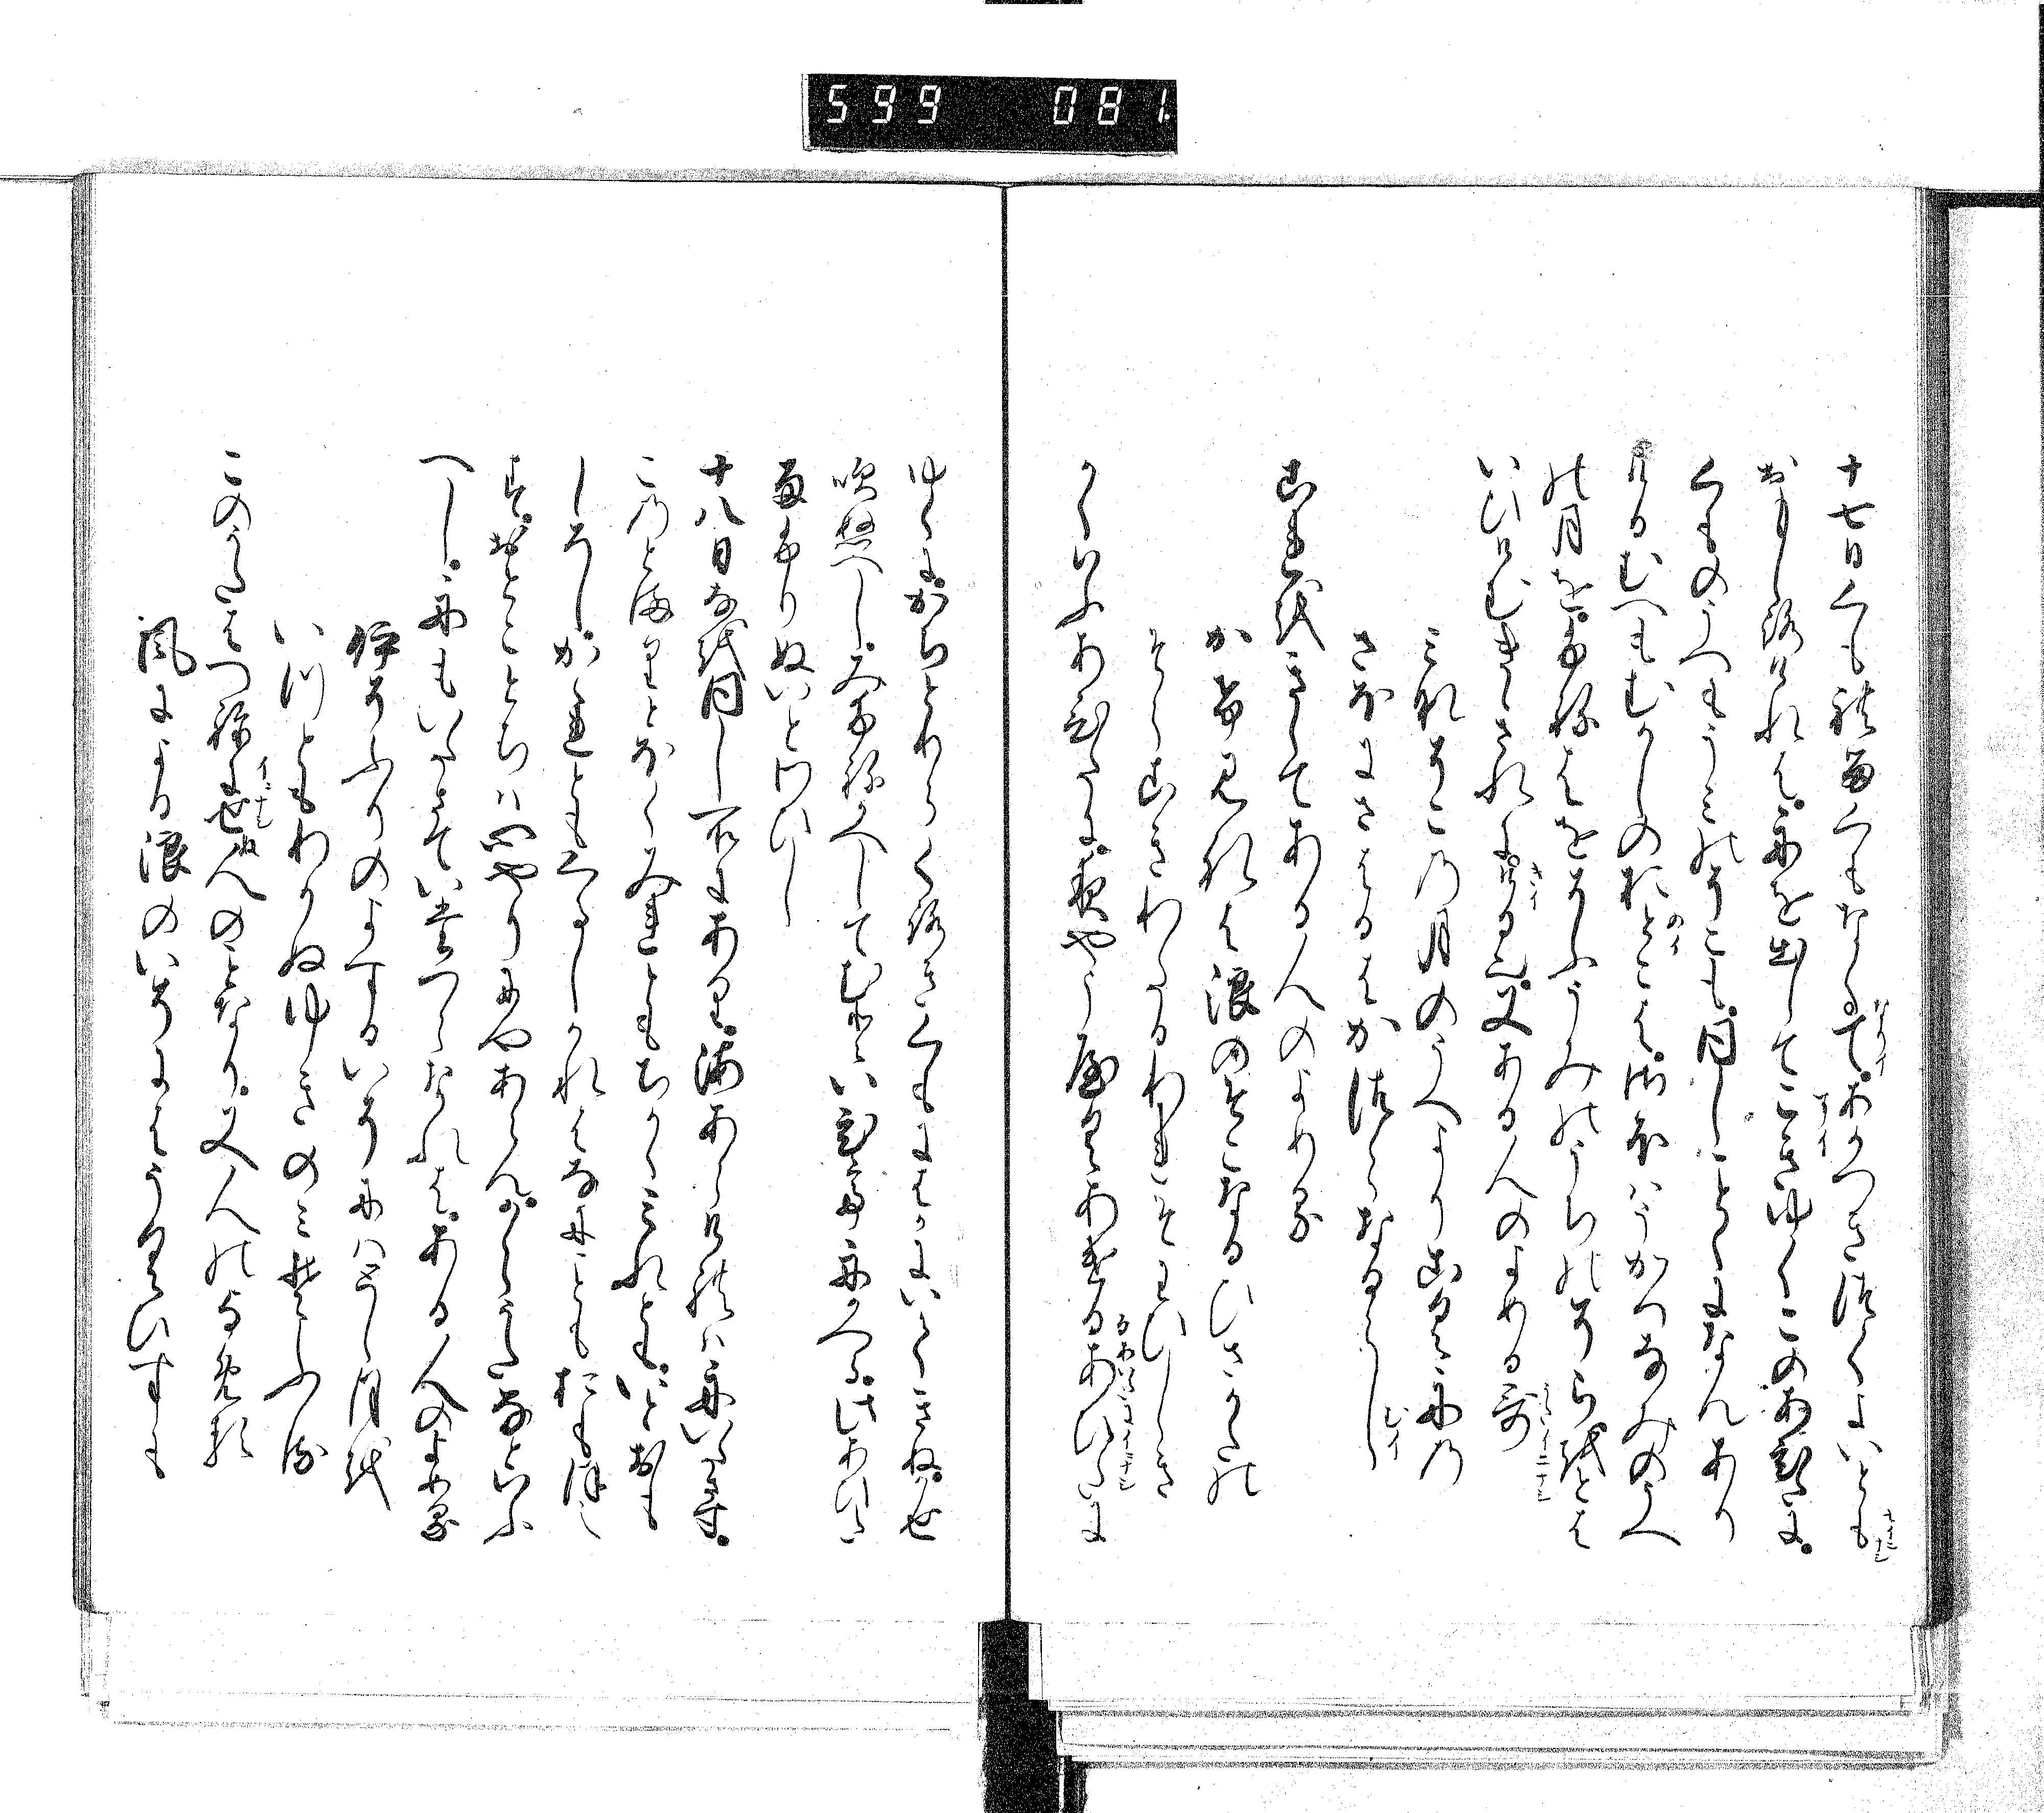 5 9 9　0 8 1
十七日くもれるくもなくて。あかつきつくよいとも
おもしろけれは。舟を出してこきゆくこのあひたに。
くものうへもうみのそこも。同しことくになんあり
けるむへもむかしのおとこは。さほはうかつなみのうへ
の月を。ふねはをそふうみのうちのそらをとは
いひけむきゝされにける也。又ある人のよめる哥
みなそこの月のうへよりこくふねの
さほにさはるはかつらなるらし
これをきゝてある人のよめる
かけ見れは浪のそこなるひさかたの
そらこきわたるわれそわひしき
かくいふあひたに。夜やうやくあけゆくあひたに
ゆくに。かちとりらくろきくもにはかにいてきぬ。かせ
吹ぬへし。みふねかへしてむといひて舟かへる。此あひた
雨ふりぬいとわひし
十八日なを同し所にあり。海あらけれは舟いたさす。
このとまりとほくみれともちかくみれとも。いとおも
しろし。かゝれともくるしけれはなにこともおもほえ
す。おとことちは心やりにやあらん。からうたなといふ
へし。舟もいたさていたつらなれは。ある人のよめる
いそふりのよするいそには年月を
いつともわかぬゆきのみそふる
このうたはつねにせぬ人のことなり。又人のよめる
風による浪のいそにはうくひすも